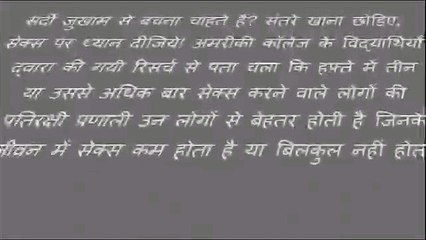 सर्दी जुखाम से बचना चाहते हैं? संतरे खाना छोड़िए,
सेक्स पर ध्यान दीजिये! अमरीकी कॉलेज के विद्यार्थियों
द्वारा की गयी रिसर्च से पता चला कि हफ्ते में तीन
या उससे अधिक बार सेक्स करने वाले लोगों की
प्रतिरक्षी प्रणाली उन लोगों से बेहतर होती है जिनके
जीवन में सेक्स कम होता है या बिलकुल नहीं होत